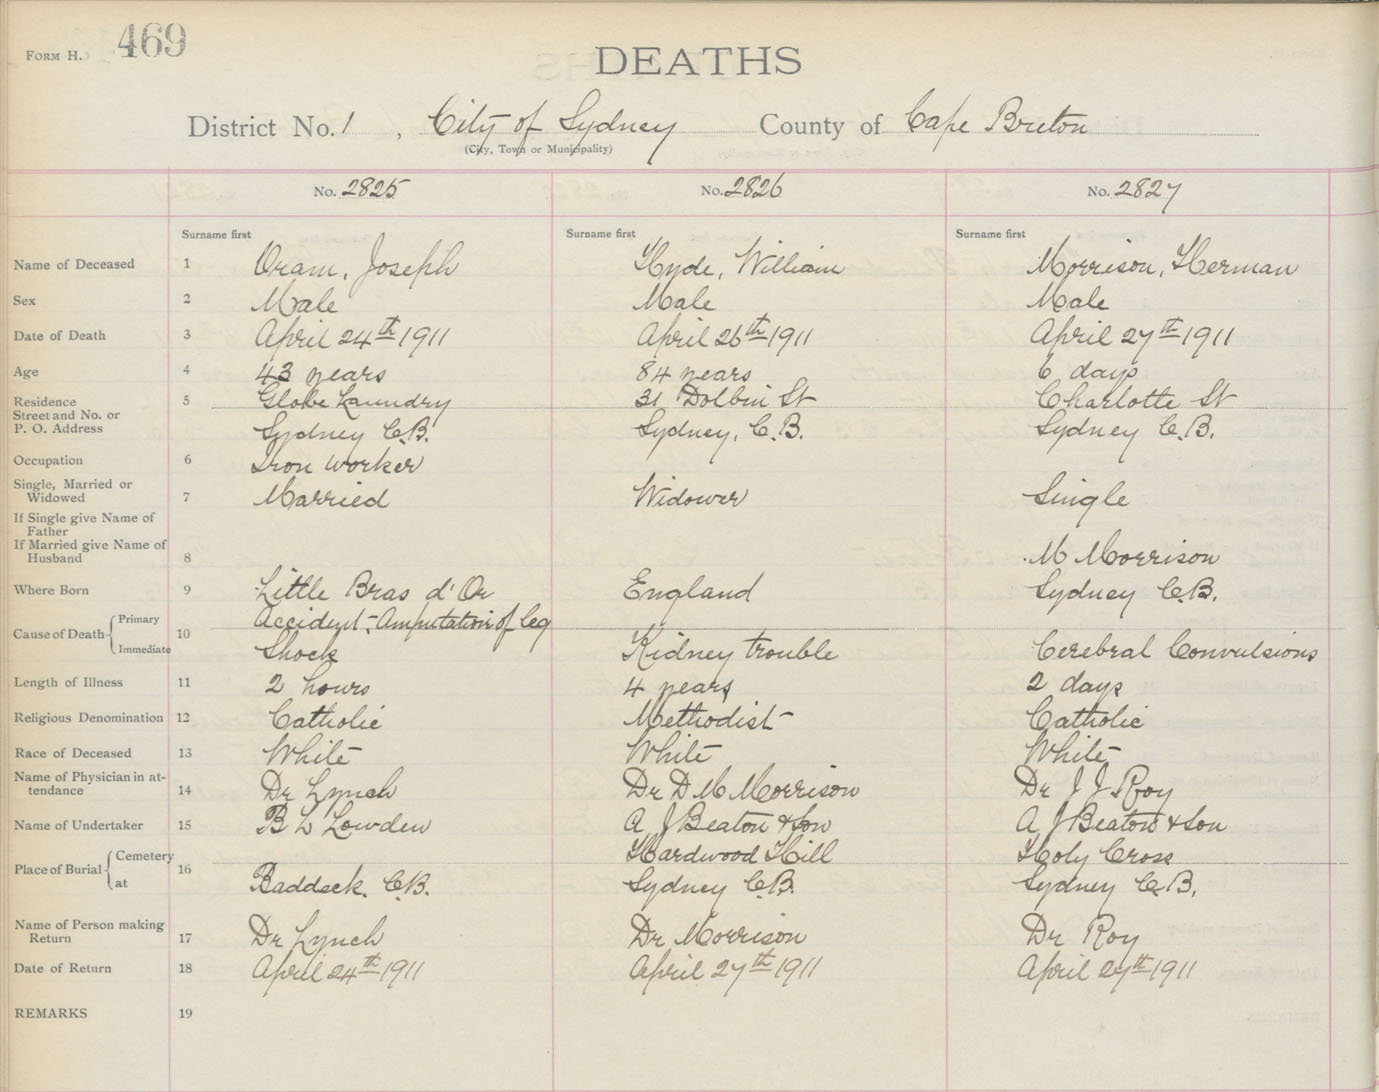 FORM H. 469
DEATHS
District No. 1, City of Sydney County of Cape Breton
(City, Town or Municipality)
No. 2825 No. 2826 No. 2827
Surname first Surname first Surname first
Name of Deceased 1 Oram, Joseph Hyde, William Morrison, Herman
Sex 2 Male Male Male
Date of Death 3 April 24th 1911 April 26th 1911 April 27th 1911
Age 4 43 years 84 years 6 days
Residence 5 Globe Laundry 31 Dolbin St Charlotte St
Street and No. or
P. O. Address Sydney C.B. Sydney, C.B. Sydney C.B.
Occupation 6 Iron worker
Single, Married or
Widowed 7 Married Widower Single
If Single give Name of
Father
If Married give Name of
Husband 8 M Morrison
Where Born 9 Little Bras d'Or England Sydney C.B.
Cause of Death 10 Primary Accident - Amputation of leg
Immediate Shock Kidney trouble Cerebral Convulsions
Length of Illness 11 2 hours 4 years 2 days
Religious Denomination 12 Catholic Methodist Catholic
Race of Deceased 13 White White White
Name of Physician in at-
tendance 14 Dr Lynch Dr D M Morrison Dr J J Roy
Name of Undertaker 15 B L Lowden A J Beaton & Son A J Beaton & Son
Place of Burial 16 Cemetery Hardwood Hill Holy Cross
at Baddeck. C.B. Sydney C.B. Sydney C.B.
Name of Person making
Return 17 Dr Lynch Dr Morrison Dr Roy
Date of Return 18 April 24th 1911 April 27th 1911 April 27th 1911
REMARKS 19